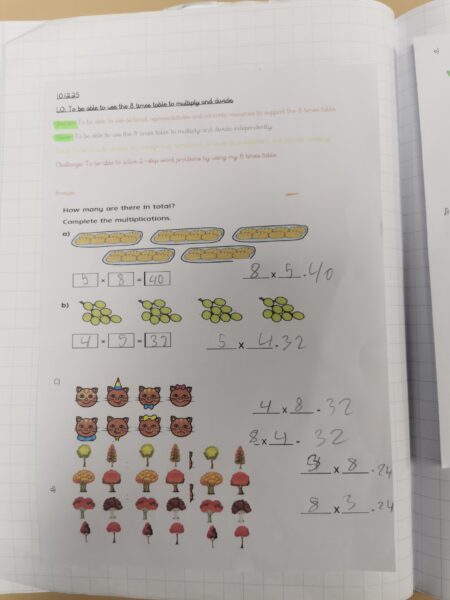 10.12.25
LO: To be able to use the 8 times table to multiply and divide
To be able to use pictorial representations and concrete resources to support the 8 times table.
To be able to use the 8 times table to multiply and divide independently.
Challenge: To be able to solve 2-step word problems by using my 8 times table.
Bronze:
How many are there in total?
Complete the multiplications.
a)
5 × 8 = 40 8 × 5 = 40
b)
4 × 5 = 32 5 × 4 = 32
c)
4 × 8 = 32
8 × 4 = 32
× 8 = 24
d)
8 × 3 = 24